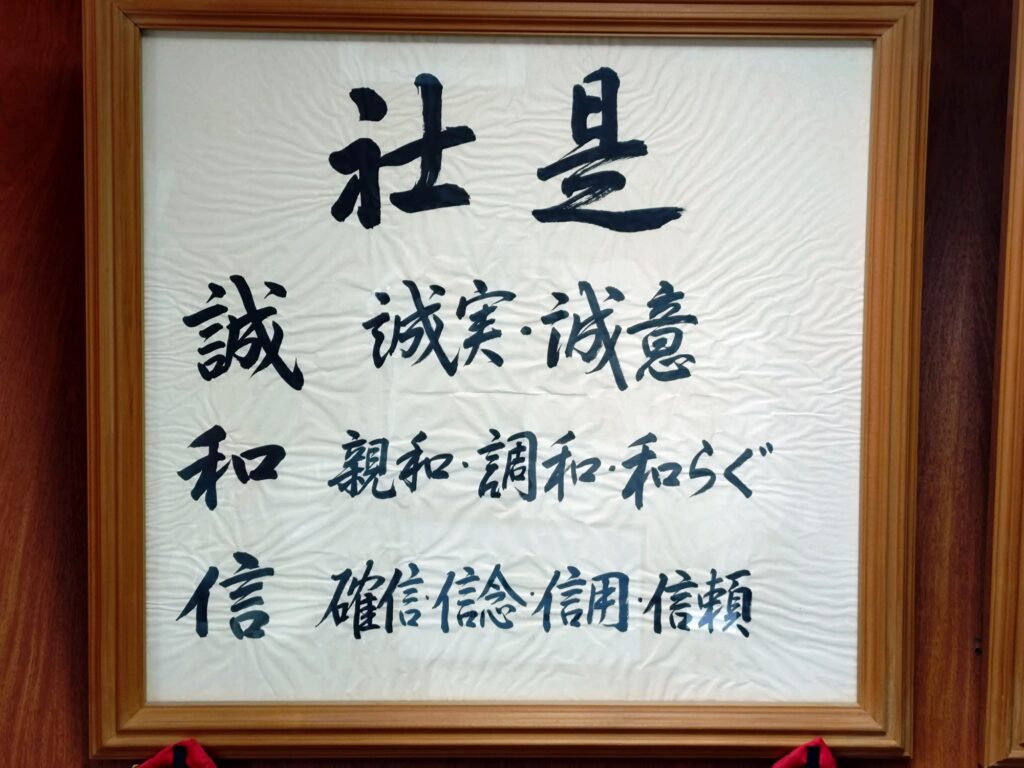 社是
誠 誠実・誠意
和 親和・調和・和らぐ
信 確信・信念・信用・信頼